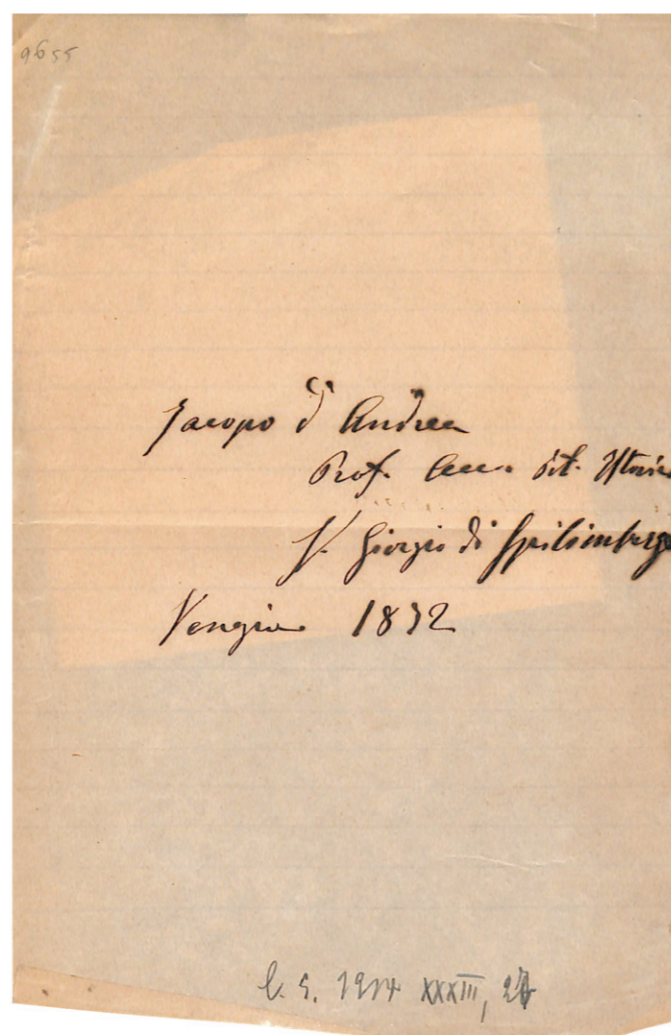 9655
Jacopo d'Andrea
Prof. Acc. Pit. Storia
S. Giorgio di Spilimbergo
Venezia 1892
1914 XXXIII, 27